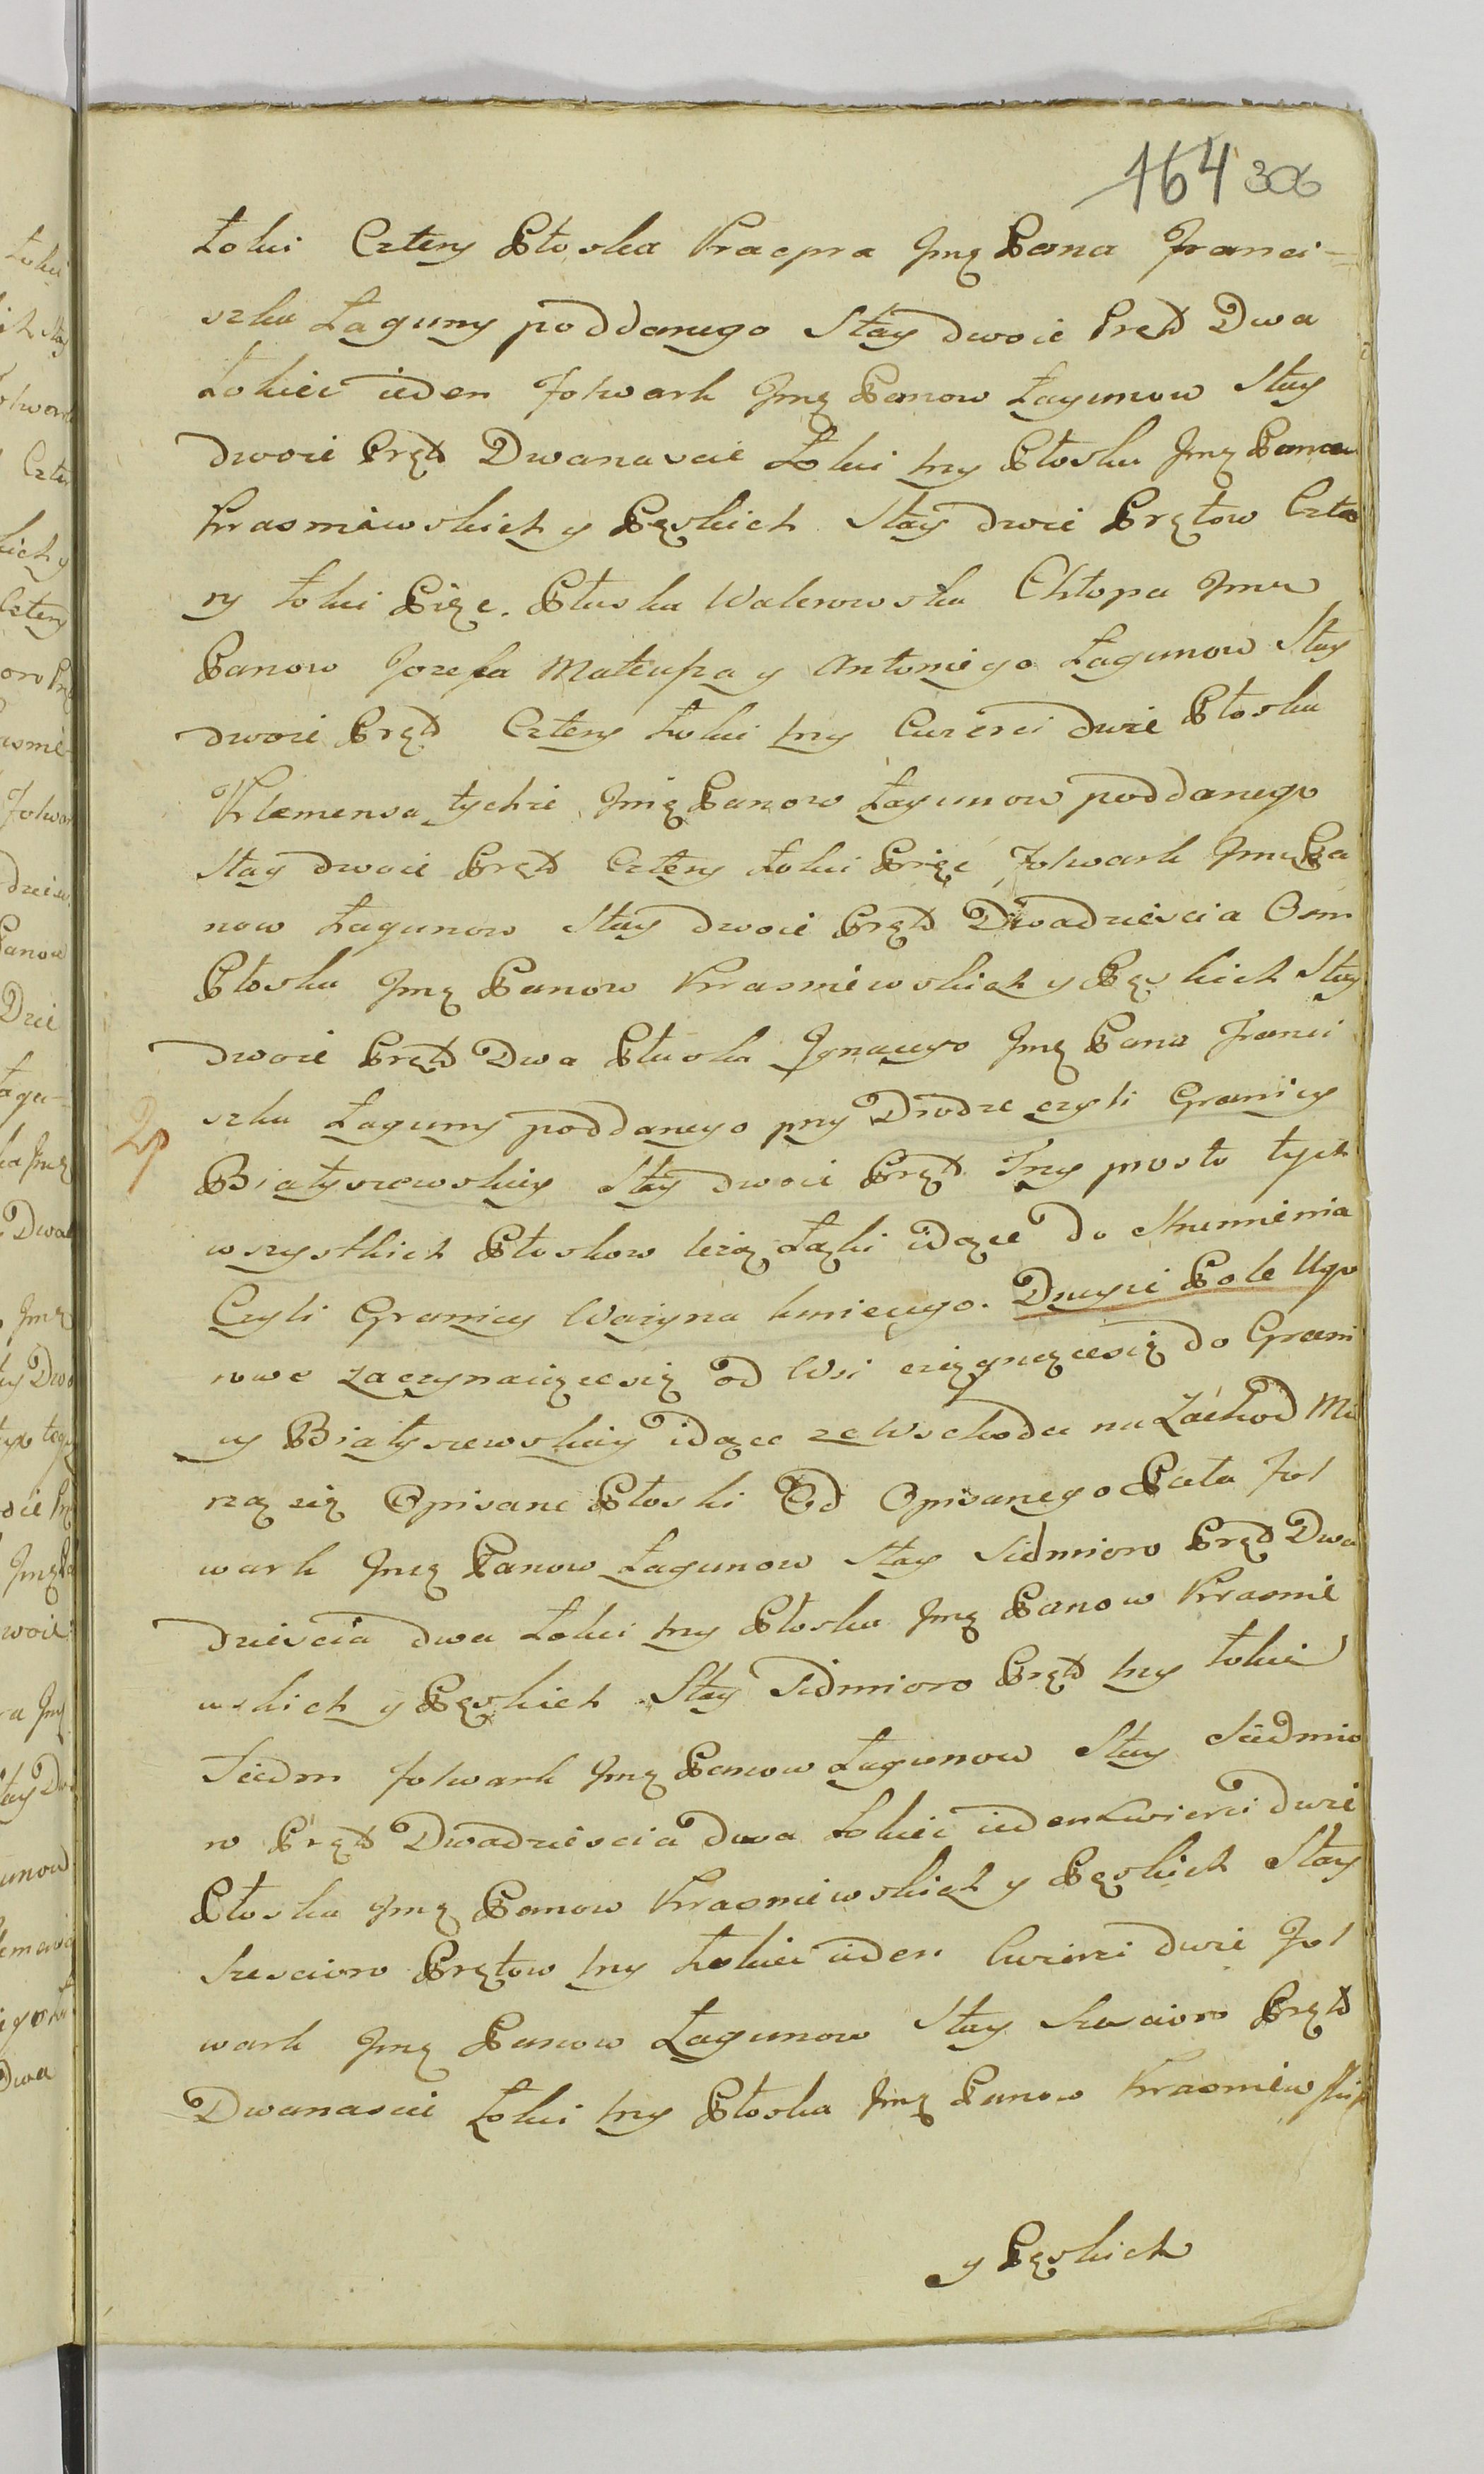 164 306
Łokci Cztery Płoska Kacpra Jmę Pana Franci-
szka Łaguny poddanego Stay dwoie Pręt Dwa
Łokiec ieden Folwark Jmę Panow Łagunow Stay
dwoie Pręt Dwanascie Łokci try Płoska Jmę Panow
Krasniewskich y Pęskich Stay dwoie Prętow Czte
ry Łokci Pięc. Płuska Walerowska Chłopa Jmę
Panow Jozefa Mateusza y Antoniego Łagunow Stay
dwoie Pręt Cztery Łokci try Cwierci dwie Płoska
Klemensa tychże Jmę Panow Łagunow poddanego
Stay dwoie Pręt Cztery Łokci Pięć Folwark Jmę Pa
now Łagunow Stay dwoie Pręt Dwadziescia Osm
Płoska Jmę Panow Krasniewskich y Pęskich Stay
dwoie Pręt Dwa Płuska Jgnacego Jmę Pana Franci
szka Łaguny poddanego przy Drodze czyli Granicy
2
Białyszewskiey Stay dwoie Pręt Trzy prosto tych
wszystkich Płoskow leżą Łąki idące do Strumienia
Czyli Granicy Ważyna kmiecego. Drugie Pole Ugo
rowe zaczynaiącesię od Wsi ciągnącesię do Grani
cy Białyszewskiey idące ze Wschodu na Zachod Mie
rzą się Opisane Płoski Od Opisanego Płata Fol
wark Jmę Panow Łagunow Stay Siedmioro Pręt Dwa
dziescia dwa Łokci try Płoska Jmę Panow Krasnie
wskich y Pęskich Stay Siedmioro Pręt try Łokci
Siedm Folwark Jmę Panow Łagunow Stay Siedmio
ro Pręt Dwadziescia dwa Łokiec ieden Cwierci dwie
Płoska Jmę Panow Krasniewskich y Pęskich Stay
Szescioro Prętow try Łokiec ieden Cwierci dwie Fol
wark Jmę Panow Łagunow Stay Szescioro Pręt
Dwanascie Łokci try Płoska Jmę Panow Krasniewskich
y Pęskich